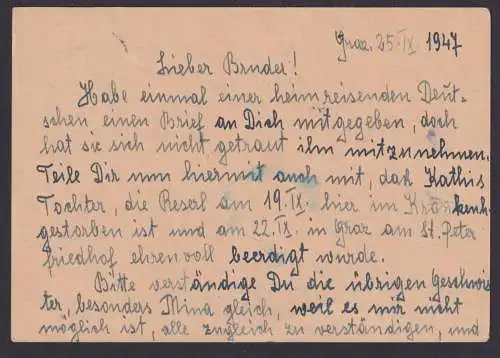 Graz, 25. IX. 1947
Lieber Bruder!
Habe einmal einer heimreisenden Deut-
schen einen Brief an Dich mitgegeben, doch
hat sie sich nicht getraut ihn mitzunehmen.
Teile Dir nun hiermit auch mit, daß Kathis
Tochter, die Reserl am 19. IX. hier im Krankenh.
gestorben ist und am 22. IX. in Graz am St. Peter
friedhof ehrenvoll beerdigt wurde.
Bitte verständige Du die übrigen Geschwis
ter, besonders Mina gleich, weil es mir nicht
möglich ist, alle zugleich zu verständigen, und